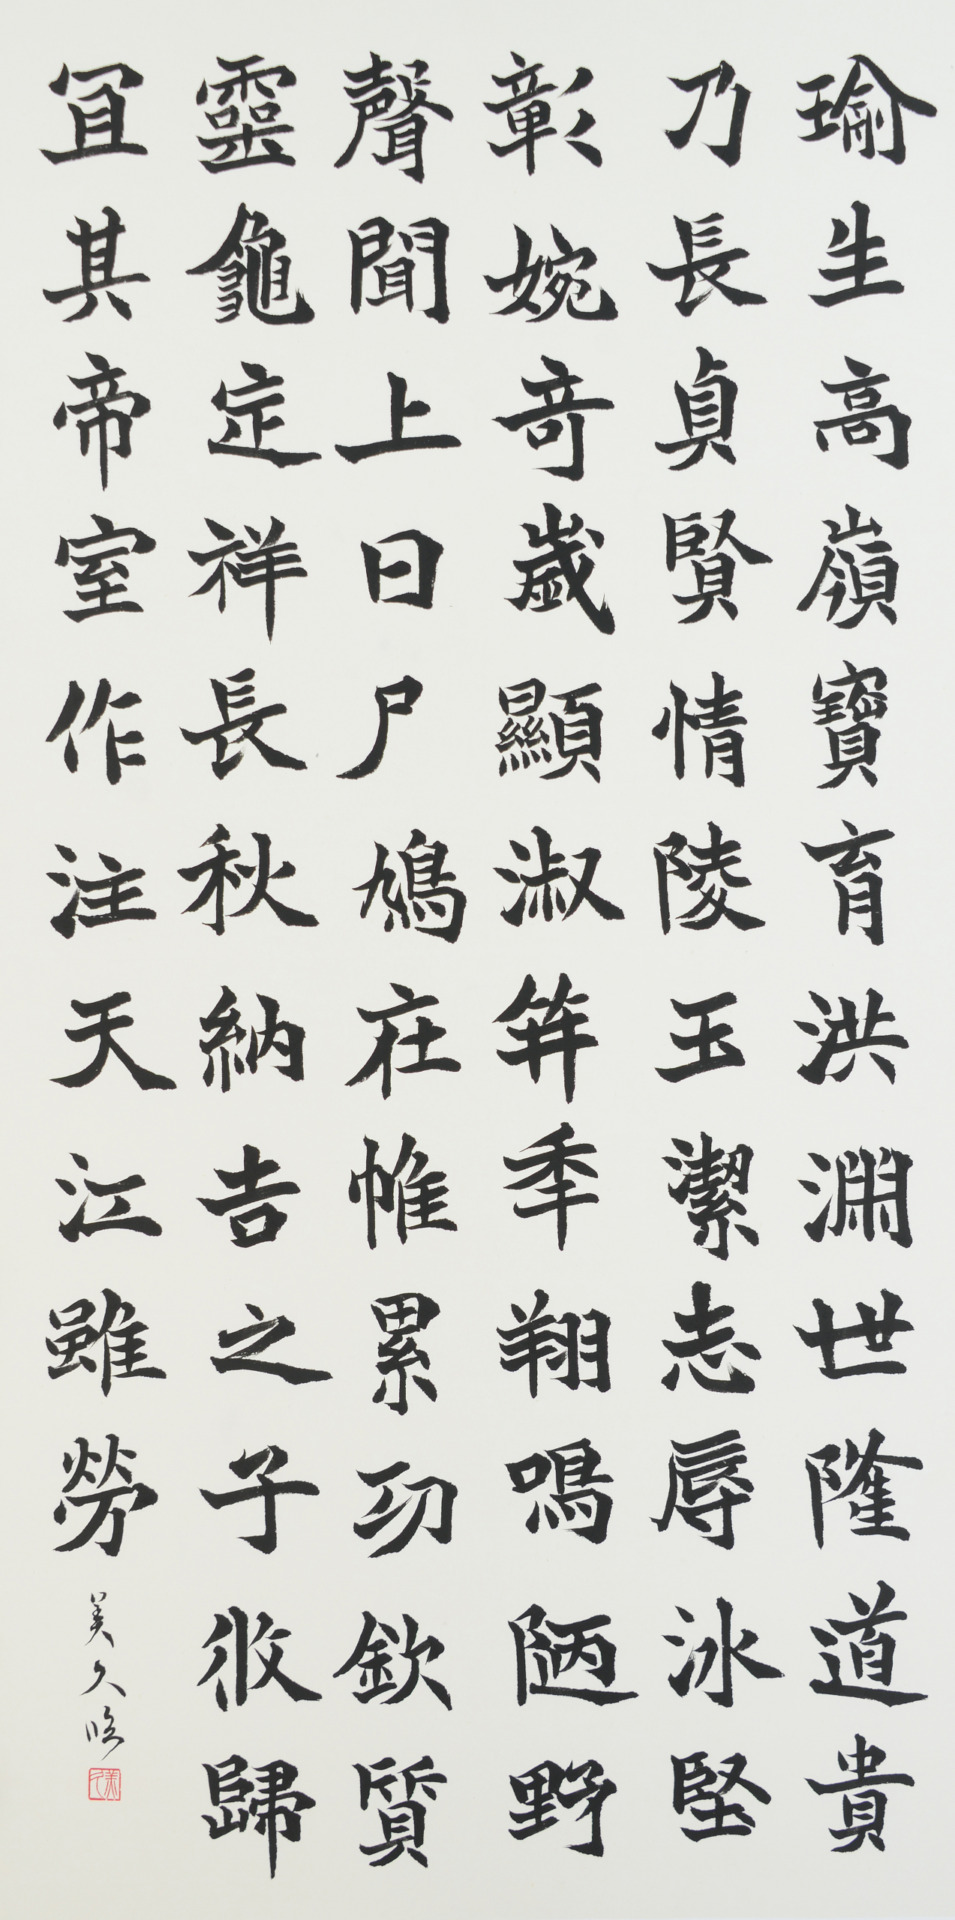 瑜生高嶺寶育洪淵世隆道貴
乃長貞賢情陵玉潔志辱冰堅
彰婉奇歲顯淑笄年翔鳴陋野
聲聞上日尸鳩在帷累功欽質
靈龜定祥長秋納吉之子攸歸
宜其帝室作注天江雖勞
美久臨